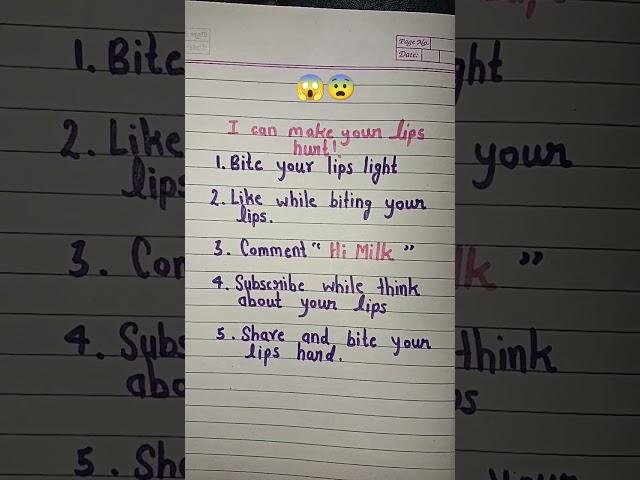 Page No.
Date:
I can make your lips
hurt!
1. Bite your lips light
2. Like while biting your
lips.
3. Comment " Hi Milk "
4. Subscribe while think
about your lips
5. Share and bite your
lips hard.